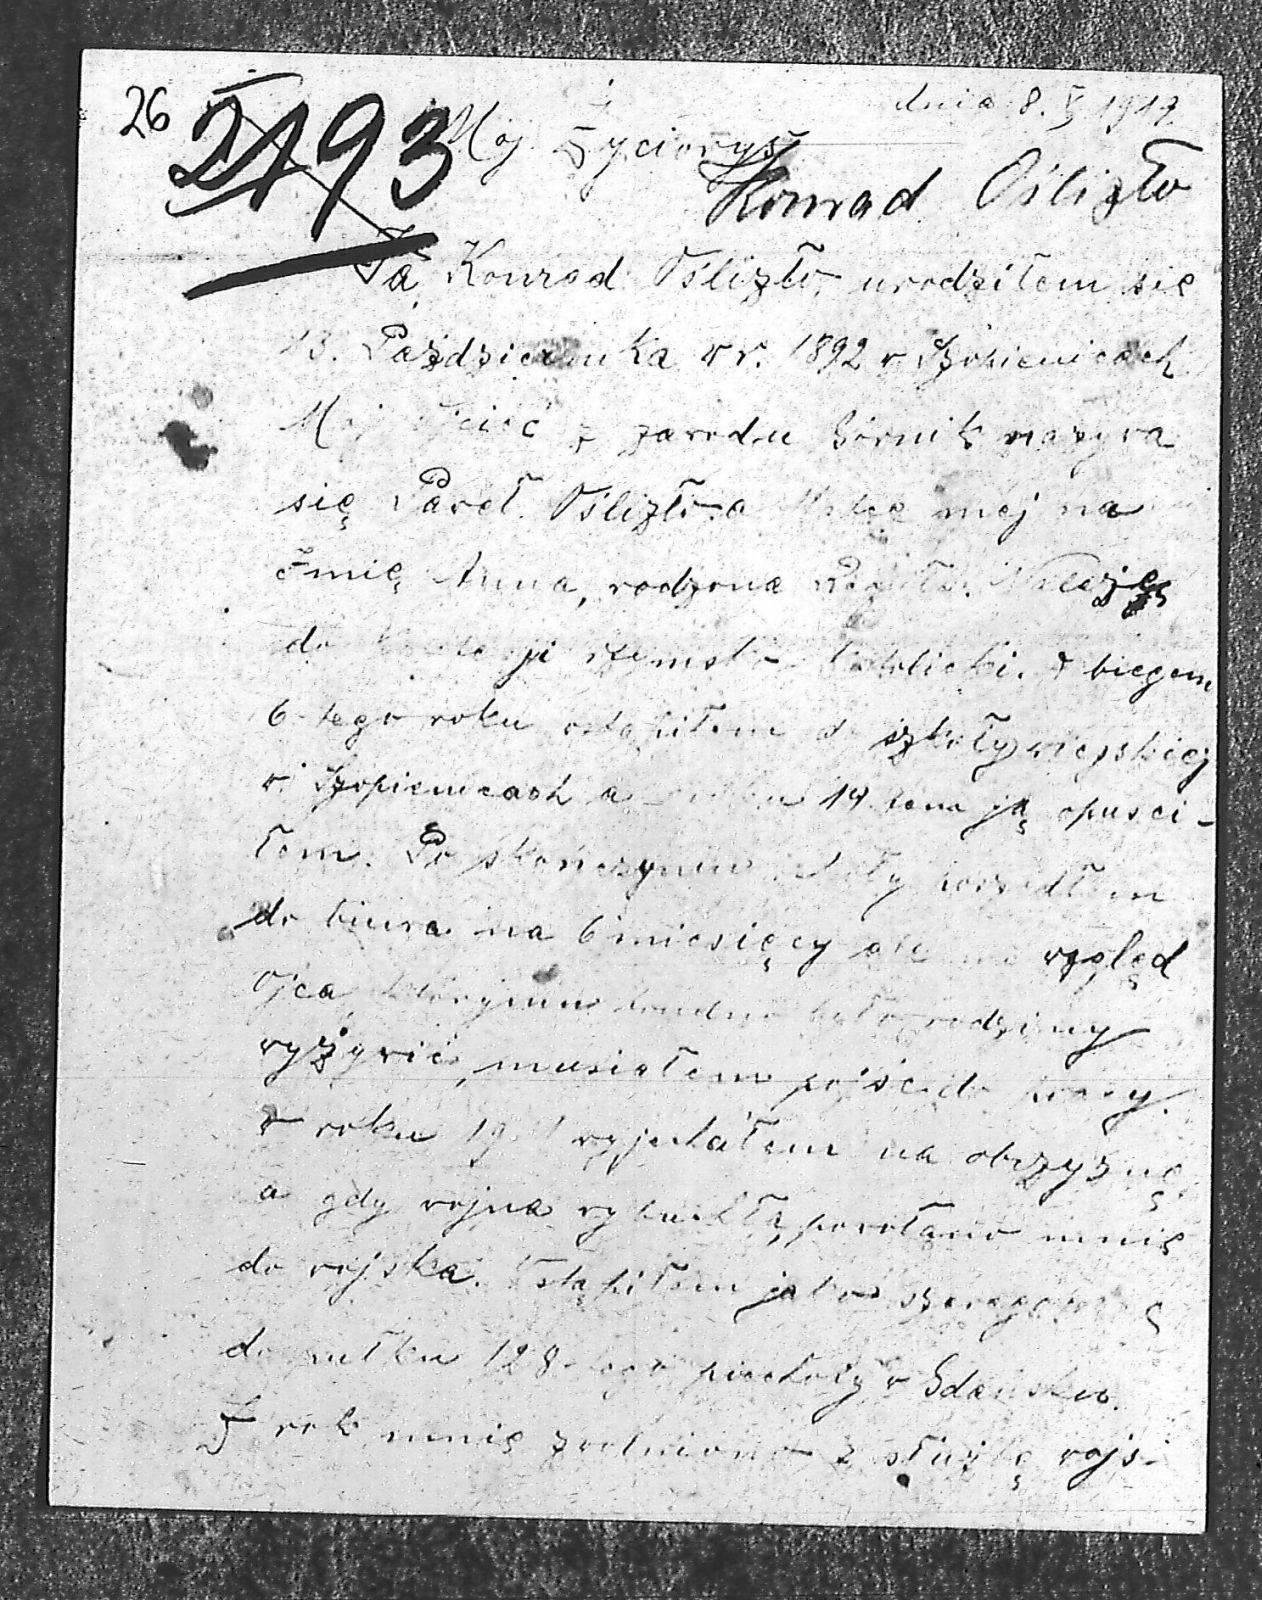 26
2193
dnia 8. V 1917
Mój Życiorys
Konrad Oślizło
Ja, Konrad Oślizło, urodziłem się
13. Października w r. 1892 w Szopienicach
Mój Ojciec z zawodu Górnik nazywa
się Paweł Oślizło a Matka mej na
Imię Anna, rodzona Należę
do ji rzymsko katolicki. Z biegem
6-tego roku wstąpiłem do szkoły wiejskiej
w Szopienicach a 14 tem ją opuści-
łem. Po skończyniu szkoły poszedłem
do biura na 6 miesięcy ale na wzgląd
Ojca, którymu trudno było rodziny
wyżywić, musiałem pojść do pracy.
W roku wyjechałem na obczyznę,
a gdy wojna wybuchła, powołano mnie
do wojska. Wstąpiłem jako
do pułku 128-tego piechoty w Gdańsku.
I rok mnie zwolniono z służbę wojs-